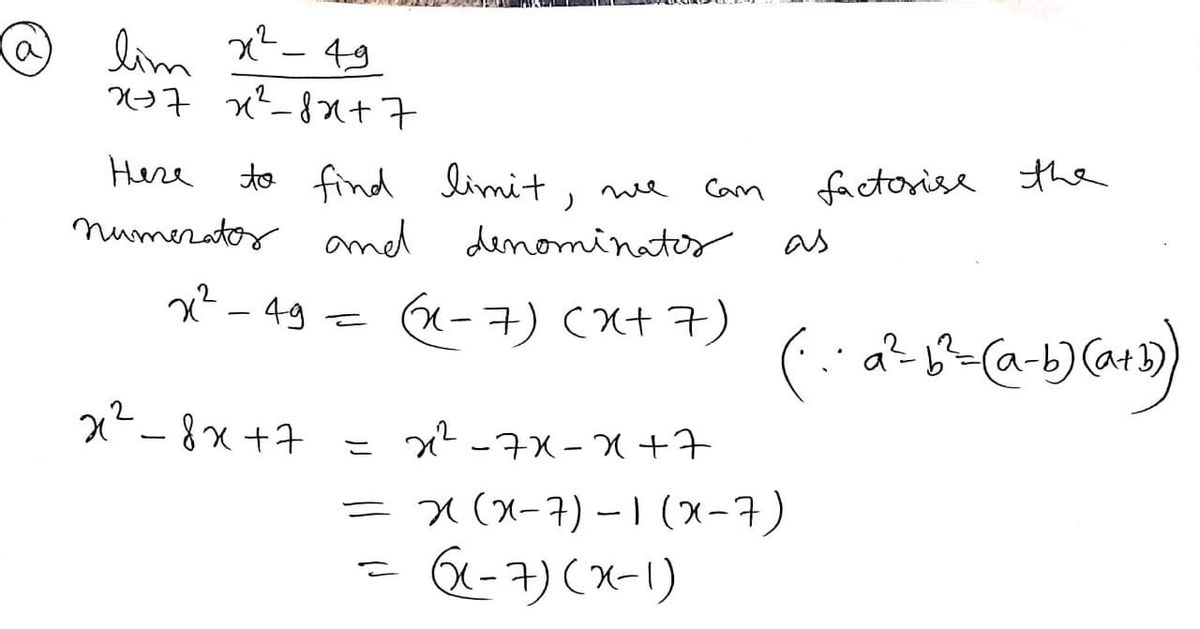 (a) lim x²-49
x→7 x²-8x+7
Here to find limit, we can factorise the
numerator and denominator as
x²-49 = (x-7)(x+7)
(∵ a²-b²=(a-b)(a+b))
x²-8x+7 = x²-7x-x+7
= x(x-7)-1(x-7)
= (x-7)(x-1)